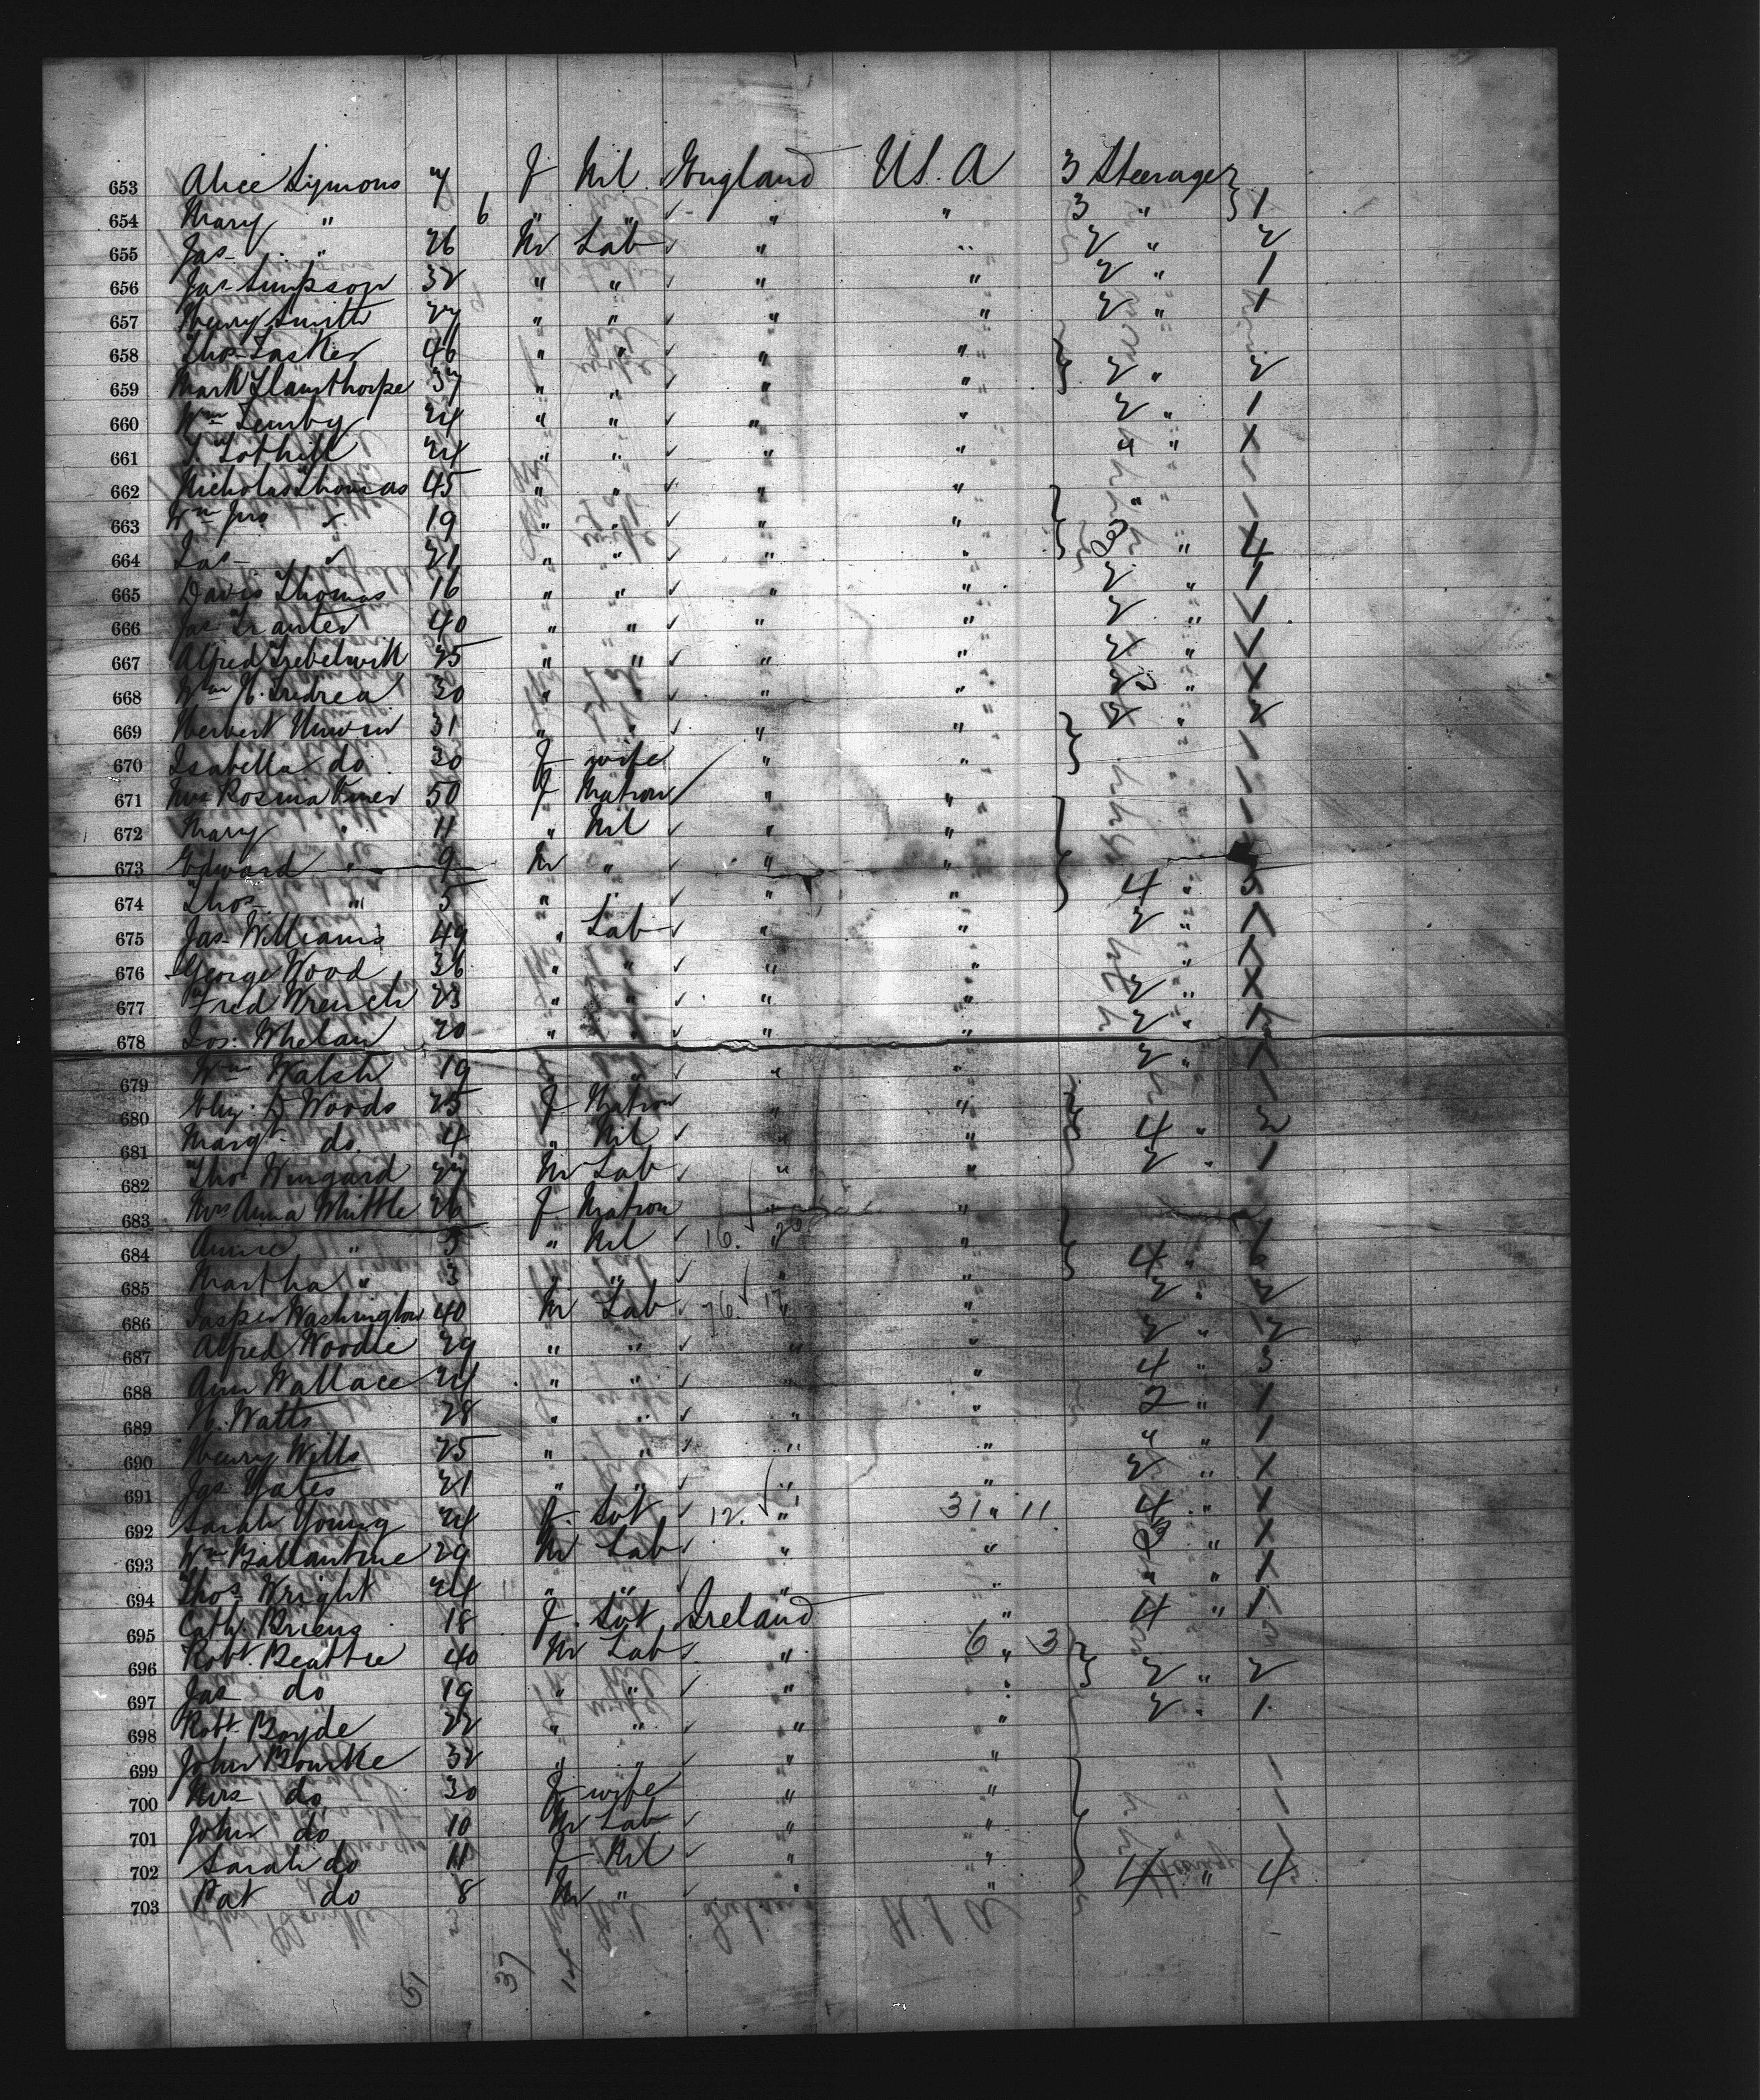 653 Alice Symons 4 F Nil England U.S.A 3 Steerage
654 Mary " 6 " " " " 3 " 1
655 Jas " 26 M Lab " " 2 " 2
656 Jas Simpson 32 " " " " 2 " 1
657 Henry Smith 27 " " " " 2 " 1
658 Thos Tasker 46 " " " "
659 Mark 37 " " " " 2 " 2
660 Wm 24 " " " " 2 " 1
661 T. Tothill 24 " " " " " " 1
662 Nicholas Thomas 45 " " " "
663 Wm Jno " 19 " " " "
664 Jas " 21 " " " " " 4
665 Davis Thomas 16 " " " " 2 " 1
666 Jas Tranter 40 " " " " 2 " 1
667 Alfred 25 " " " " 2 " 1
668 Wm H. Tredrea 30 " " " " 2 " 1
669 Herbert Unwin 31 " " " " 2 " 2
670 Isabella do 30 F wife " "
671 Mrs Rosina 50 F Matron " "
672 Mary " 11 " Nil " "
673 Edward " 9 M " " "
674 Thos " 5 " " " " 4 " 3
675 Jas Williams 49 " Lab " " 2 " 1
676 George Wood 36 " " " " " 1
677 Fred Wrench 23 " " " " 2 " 1
678 Jos: Whelan 20 " " " " 2 " 1
679 Wm Walsh 19 " " " " 2 " 1
680 Eliz: Woods 25 F Matron " "
681 Margt do. 4 " Nil " " 4 " 2
682 Thos Wingard 27 M Lab " " 2 " 1
683 Mrs Anna Whittle 26 F Matron " "
684 Annie " 5 " Nil 16. " "
685 Martha " 3 " " " " 4 " 6
686 Jasper Washington 40 M Lab 17 " " 2 " 2
687 Alfred Woodie 29 " " " " 2 " 12
688 Ann Wallace 24 " " " 4 " 3
689 H. Watts 28 " " " " 2 " 1
690 Henry Wills 25 " " " " " " 1
691 Jas Yates 21 " " " " 2 " 1
692 Sarah Young 24 F. Svt 12. " 31 " 11 4 " 1
693 Wm Ballantine 29 M Lab " " " 1
694 Thos Wright 24 " " " " " " 1
695 Cath: Briens 18 F. Svt Ireland " 4 " 1
696 Robt. Beattie 40 M Lab " 6 " 3
697 Jas do 19 " " " " 2 " 2
698 Robt Boyde 22 " " " " 2 " 1
699 John Bourke 32 " " " "
700 Mrs do 30 F wife " "
701 John do 10 M Lab " "
702 Sarah do 11 F Nil " "
703 Pat do 8 M " " " 4 " 4
51 37 14